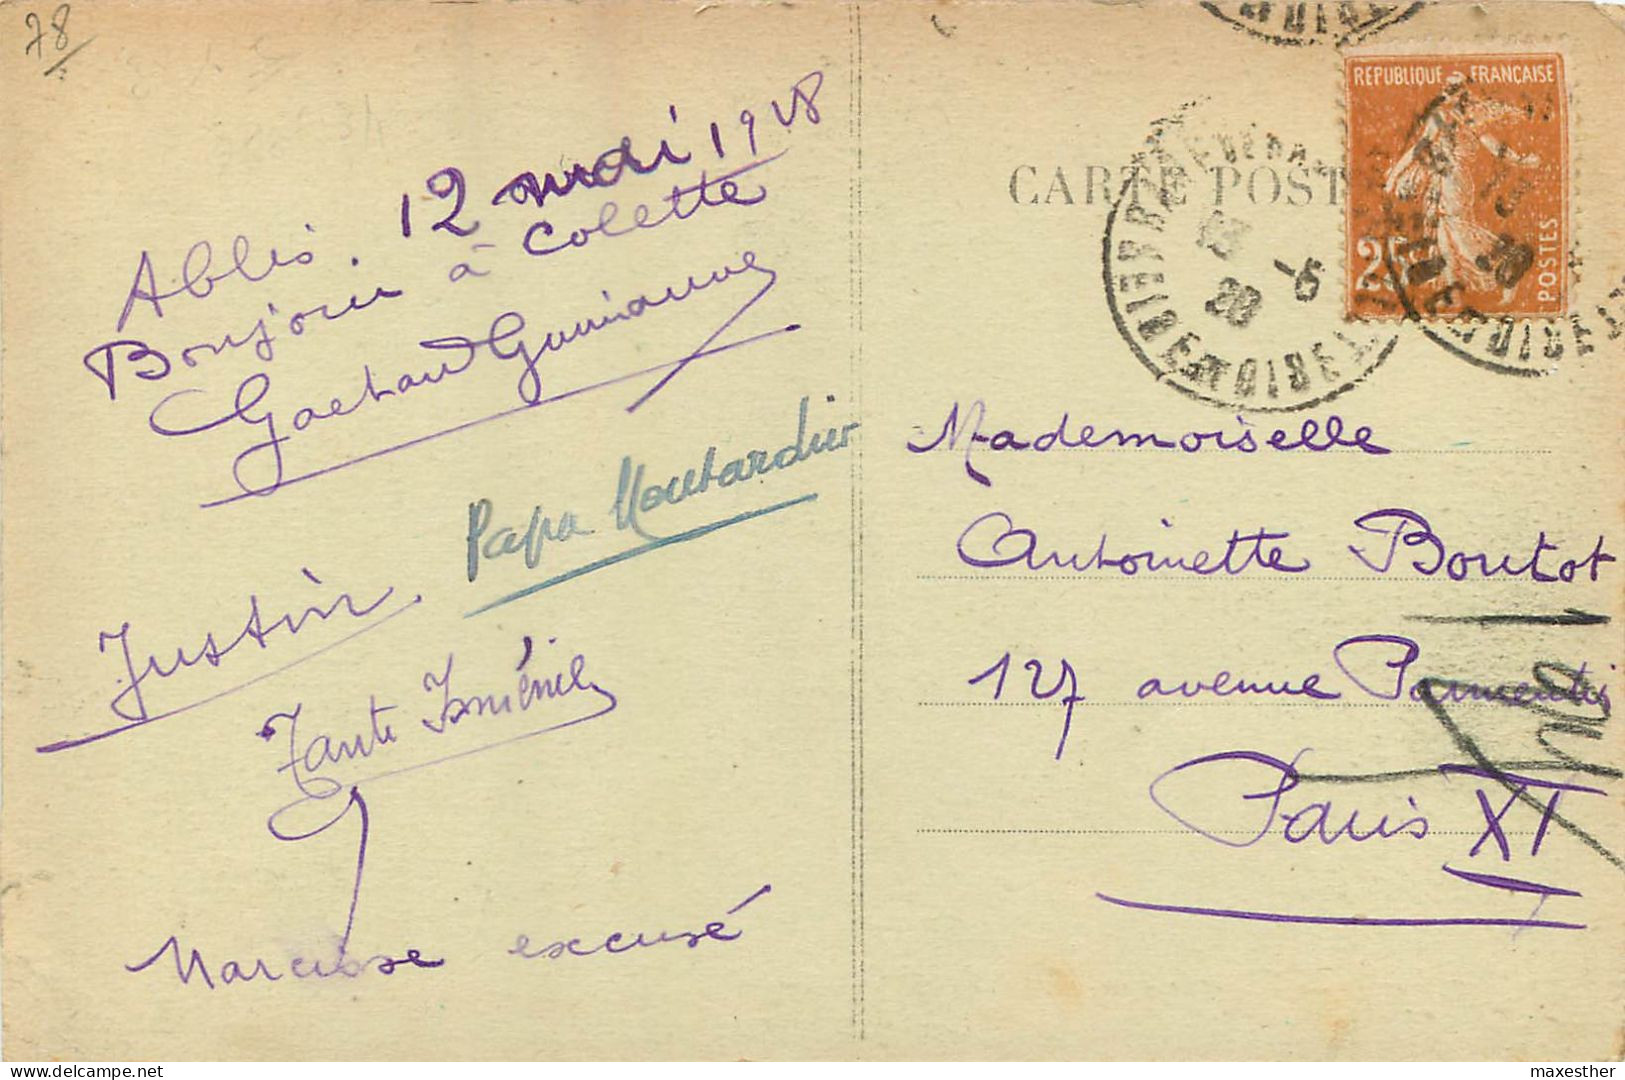 78
Ablis. 12 mai 1928
Bonjour à Colette
Gaetan
Papa Moutardier
Justin.
Tante Isménie
Narcisse excusé
CARTE POST
REPUBLIQUE FRANÇAISE
25
POSTES
13
-5
28
Mademoiselle
Antoinette Boutot
127 avenue Parmentier
Paris XI
delcampe.net
maxesther